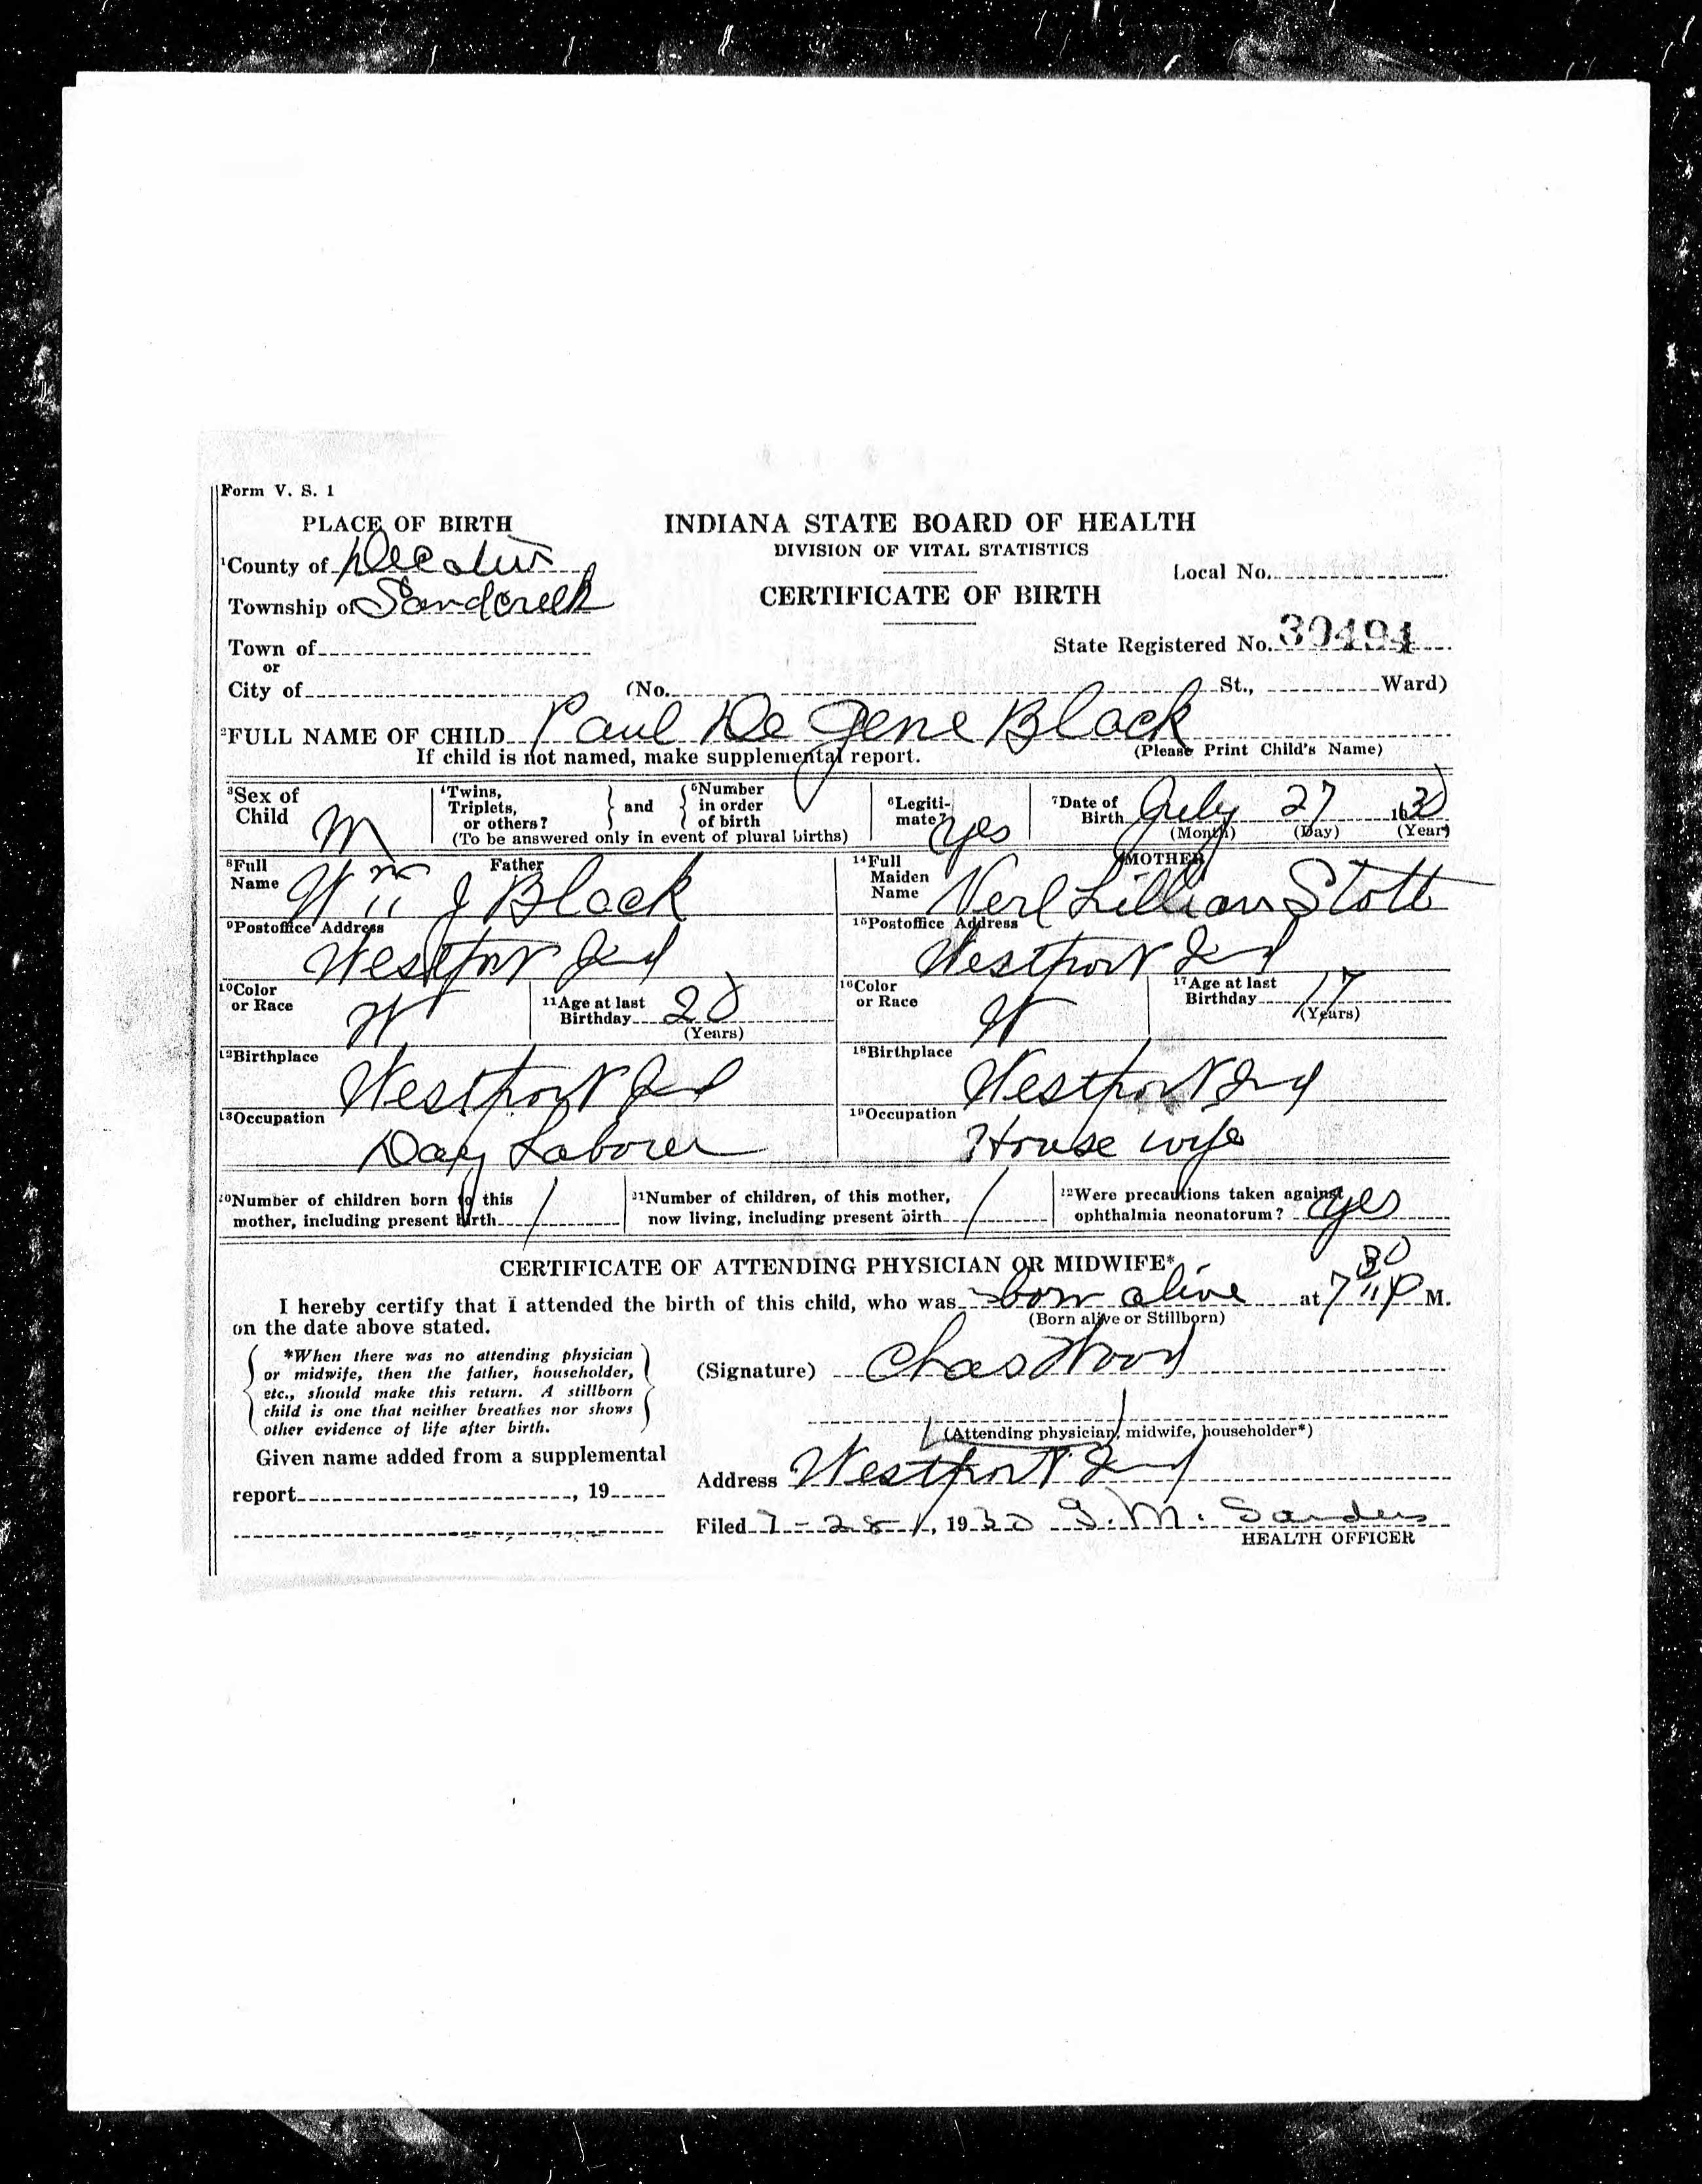 Form V. S. 1
PLACE OF BIRTH
INDIANA STATE BOARD OF HEALTH
DIVISION OF VITAL STATISTICS
¹County of Decatur
Local No.
Township of Sandcreek
CERTIFICATE OF BIRTH
Town of
or
State Registered No. 30494
City of (No. St., Ward)
²FULL NAME OF CHILD Paul De Gene Black
If child is not named, make supplemental report. (Please Print Child's Name)
³Sex of Child M
⁴Twins, Triplets, or others? and ⁵Number in order of birth
(To be answered only in event of plural births)
⁶Legitimate? yes
⁷Date of Birth July 27 1930
(Month) (Day) (Year)
Father
⁸Full Name Wm J Black
MOTHER
¹⁴Full Maiden Name Verl Lillian Stott
⁹Postoffice Address
Westport Ind
¹⁵Postoffice Address
Westport Ind
¹⁰Color or Race W
¹¹Age at last Birthday 20
(Years)
¹⁶Color or Race W
¹⁷Age at last Birthday 17
(Years)
¹²Birthplace
Westport Ind
¹⁸Birthplace
Westport Ind
¹³Occupation
Day Laborer
¹⁹Occupation
House wife
²⁰Number of children born to this mother, including present birth 1
²¹Number of children, of this mother, now living, including present birth 1
²²Were precautions taken against ophthalmia neonatorum? yes
CERTIFICATE OF ATTENDING PHYSICIAN OR MIDWIFE*
I hereby certify that I attended the birth of this child, who was born alive at 7 30 P M.
on the date above stated. (Born alive or Stillborn)
*When there was no attending physician
or midwife, then the father, householder,
etc., should make this return. A stillborn
child is one that neither breathes nor shows
other evidence of life after birth.
(Signature) Chas Wood
(Attending physician, midwife, householder*)
Given name added from a supplemental
report , 19
Address Westport Ind
Filed 7-28, 1930 S. M. Sanders
HEALTH OFFICER